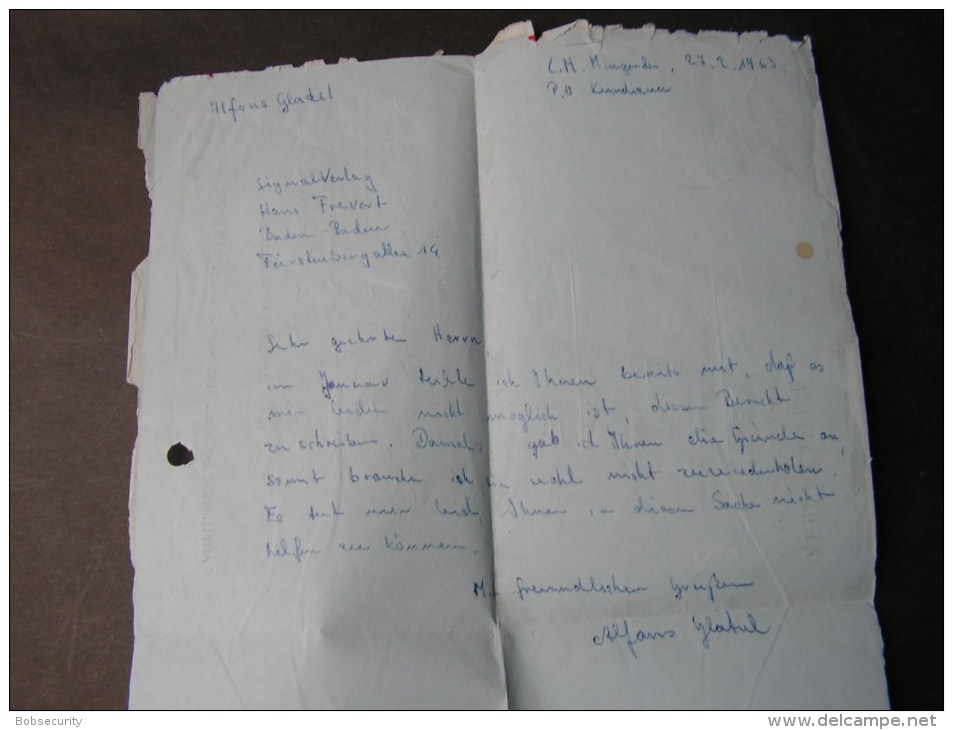 Alfons Gladel
C.H. Mingende, 27.2.1963.
P.O Kundiawa
Signal Verlag
Hans Frevert
Baden-Baden
Fürstenbergallee 14
Sehr geehrter Herrn
im Januar teilte ich Ihnen bereits mit, daß es
mir leider nicht möglich ist, diesen Bericht
zu schreiben. Damals gab ich Ihnen die Gründe an
somit brauche ich sie wohl nicht zu wiederholen!
Es tut mir leid, Ihnen in dieser Sache nicht
helfen zu können.
Mit freundlichen Grüßen
Alfons
Bobsecurity
www.delcampe.net